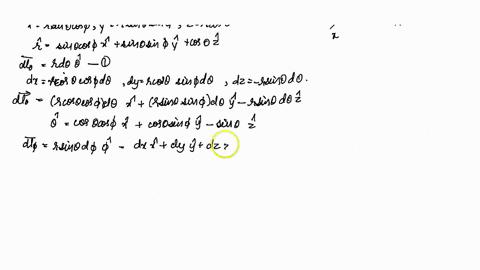 r̂ = sinθcosφ x̂ + sinθsinφ ŷ + cosθ ẑ
x
dl_θ = rdθ θ̂ — ①
dx = rcosθ cosφdθ , dy = rcosθ sinφdθ , dz = -rsinθdθ.
dl_θ = (rcosθcosφ)dθ x̂ + (rsinθ sinφ)dθ ŷ - rsinθ dθ ẑ
θ̂ = cosθcosφ x̂ + cosθsinφ ŷ - sinθ ẑ
dl_φ = rsinθdφ φ̂ - dx x̂ + dy ŷ + dz